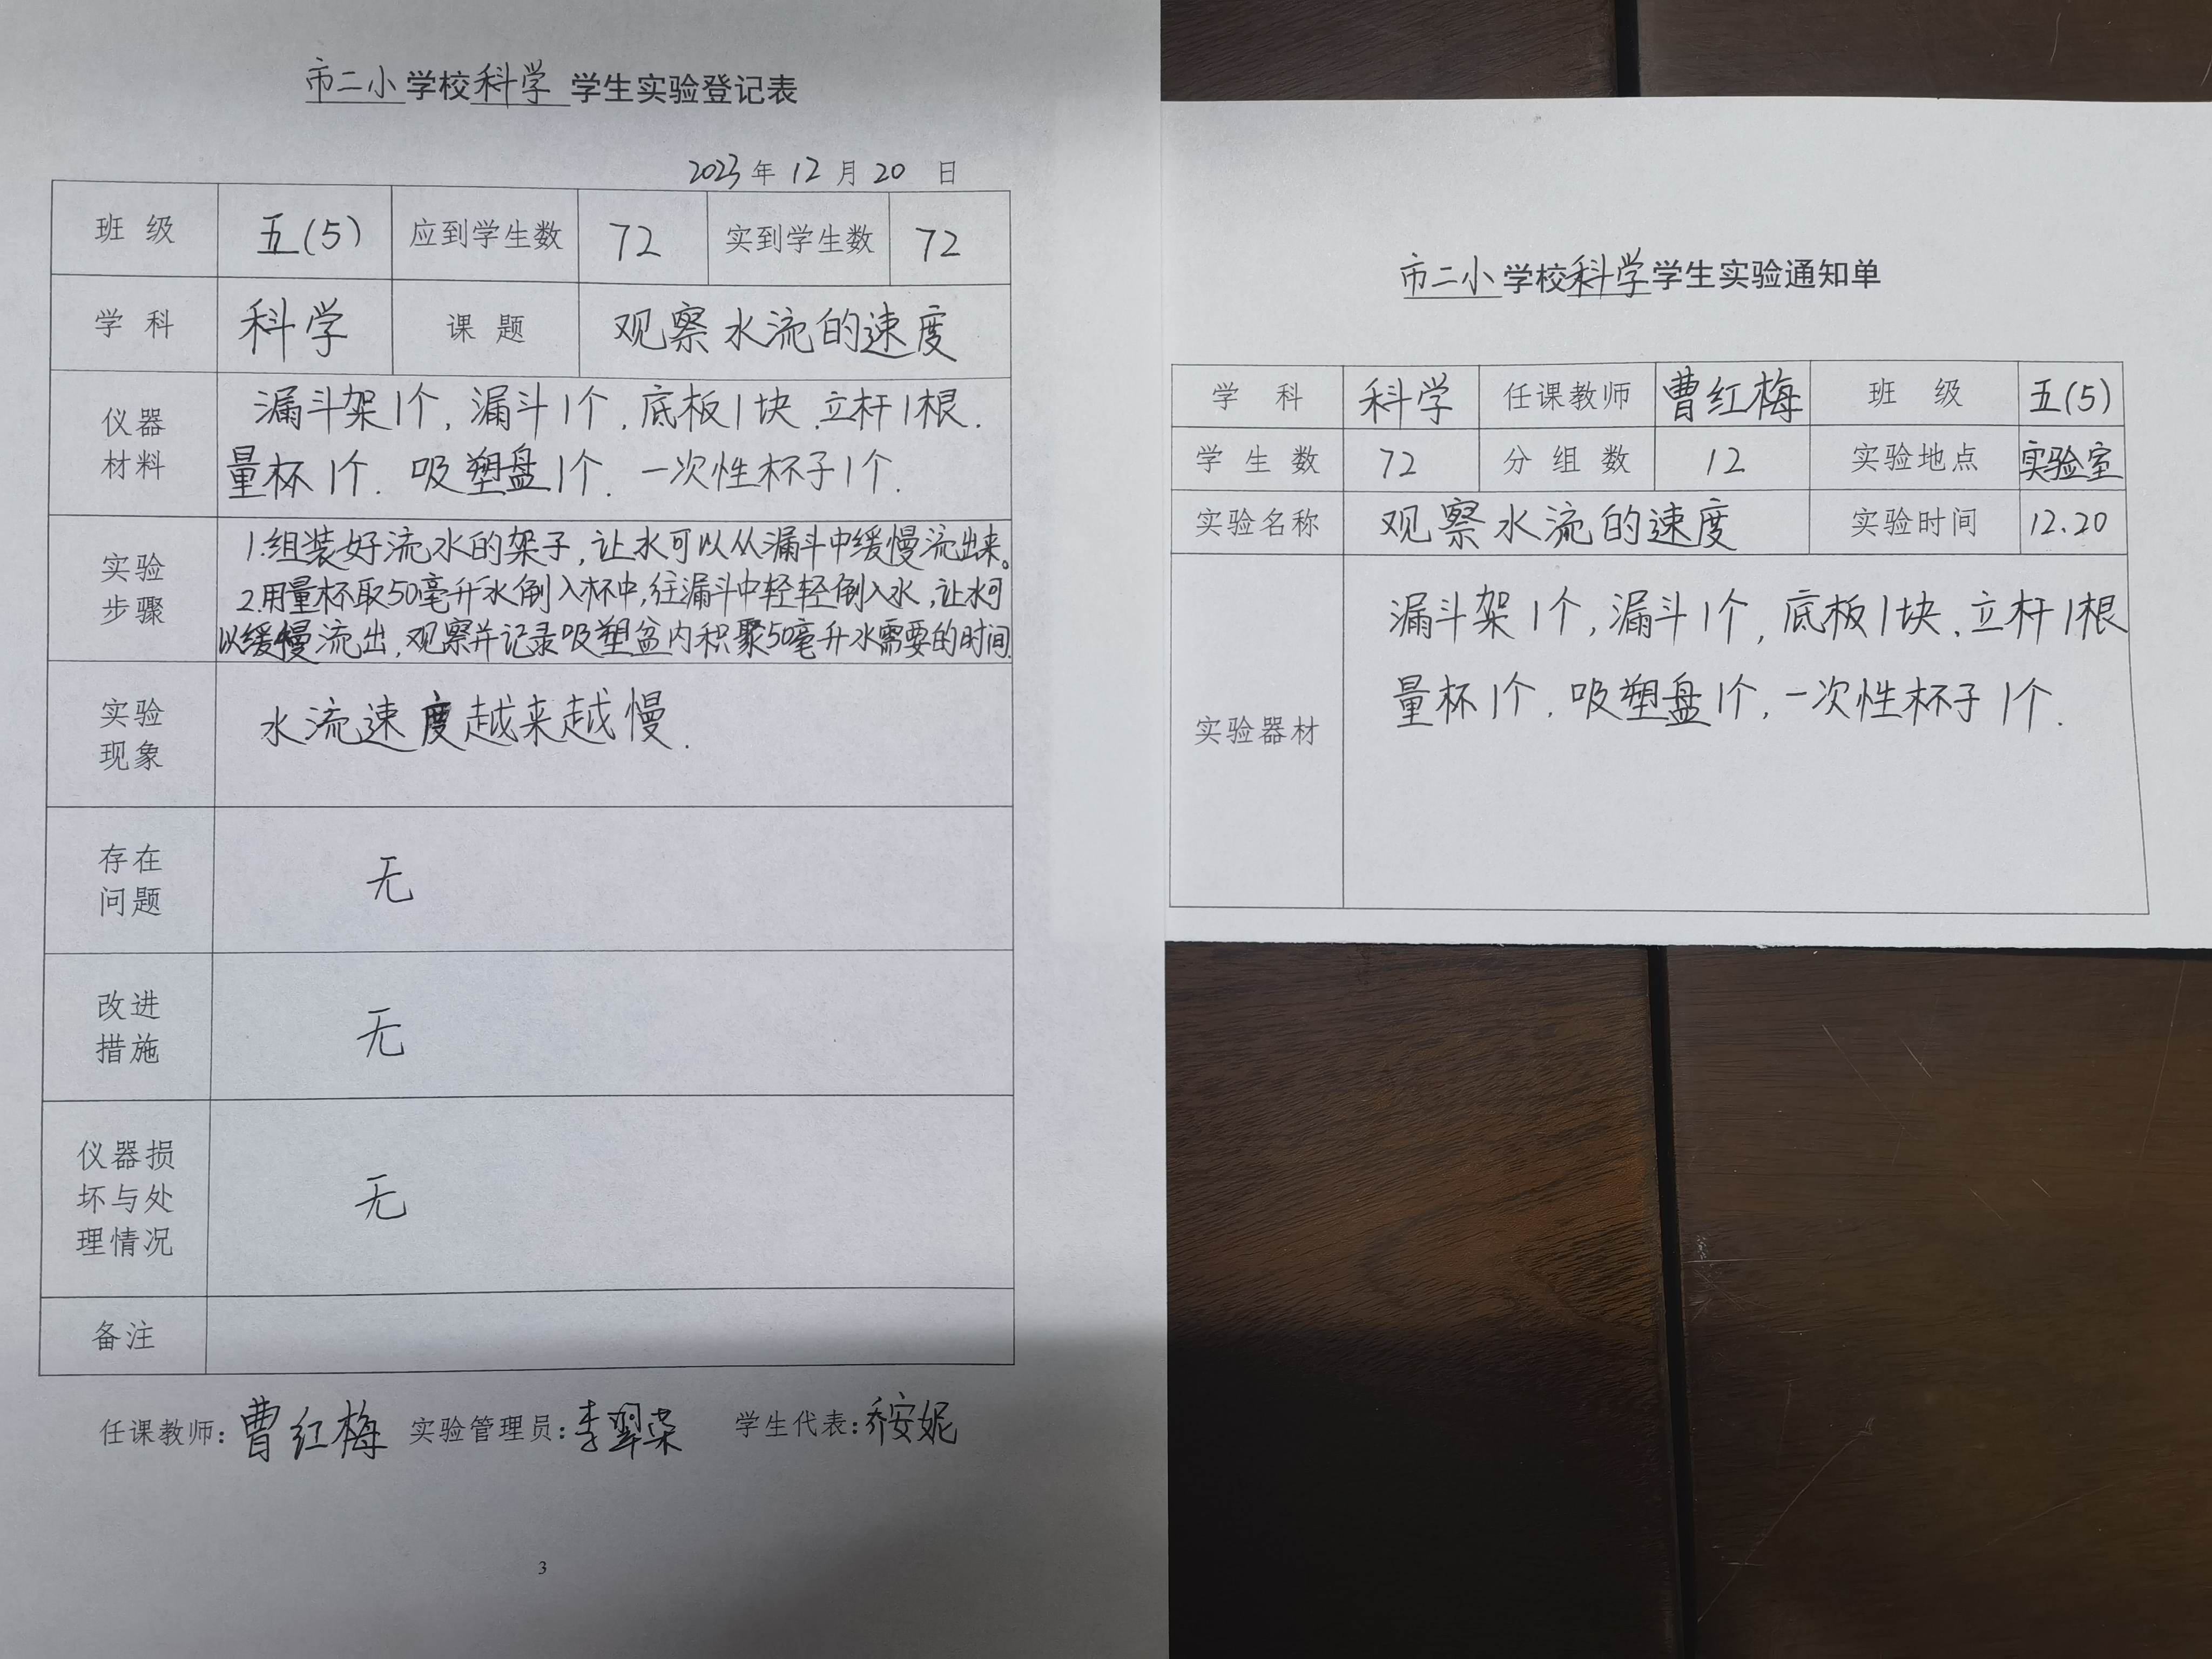 市二小学校科学 学生实验登记表
2023年12月20日
班级 五(5) 应到学生数 72 实到学生数 72
学科 科学 课题 观察水流的速度
仪器材料
漏斗架1个,漏斗1个,底板1块、立杆1根.
量杯1个. 吸塑盘1个. 一次性杯子1个.
实验步骤
1.组装好流水的架子,让水可以从漏斗中缓慢流出来。
2.用量杯取50毫升水倒入杯中,往漏斗中轻轻倒入水,让水可
以缓慢流出,观察并记录吸塑盆内积聚50毫升水需要的时间.
实验现象
水流速度越来越慢.
存在问题
无
改进措施
无
仪器损坏与处理情况
无
备注
任课教师:曹红梅 实验管理员:李翠荣 学生代表:乔安妮
3
市二小学校科学学生实验通知单
学科 科学 任课教师 曹红梅 班级 五(5)
学生数 72 分组数 12 实验地点 实验室
实验名称 观察水流的速度 实验时间 12.20
实验器材
漏斗架1个,漏斗1个,底板1块、立杆1根
量杯1个.吸塑盘1个,一次性杯子1个.